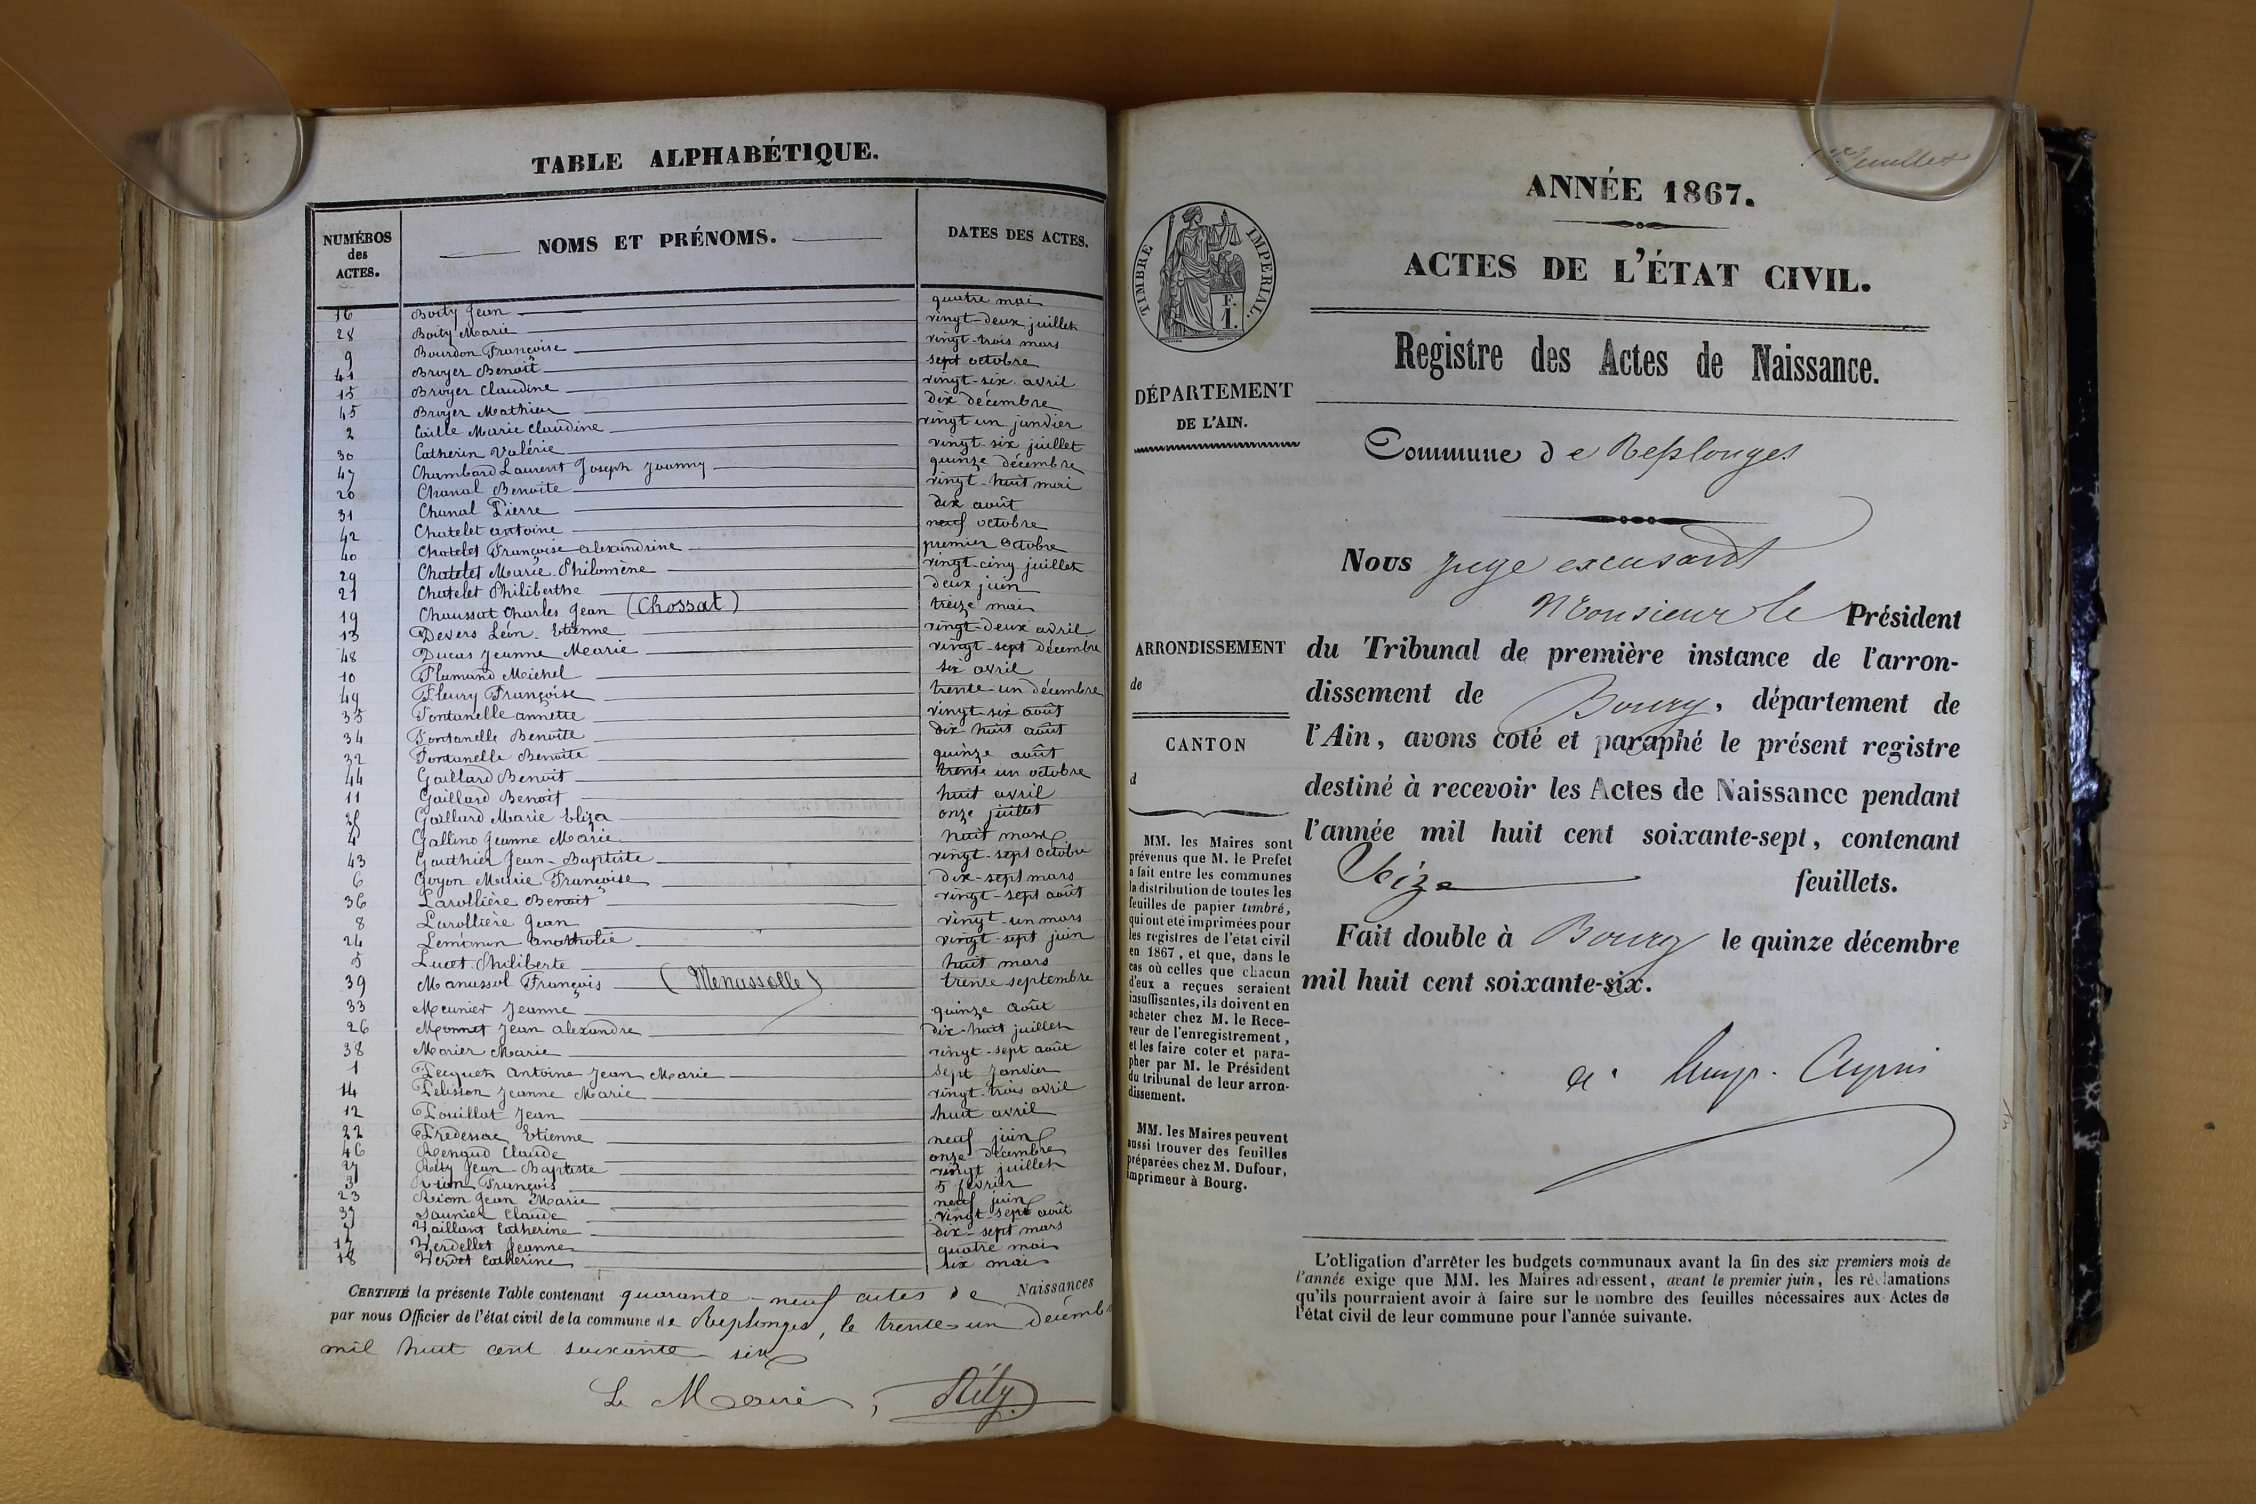 TABLE ALPHABÉTIQUE.
NUMÉROS des ACTES. NOMS ET PRÉNOMS. DATES DES ACTES.
16 Boity Jean quatre mai
28 Boity Marie vingt-deux juillet
9 Bourdon Françoise vingt-trois mars
41 Broyer Benoît sept octobre
15 Broyer Claudine vingt-six avril
45 Broyer Mathieu dix décembre
2 Caille Marie Claudine vingt un janvier
30 Catherin Valérie vingt-six juillet
47 Chambard Laurent Joseph Joanny quinze décembre
20 Chanal Benoîte vingt-huit mai
31 Chanal Pierre dix août
42 Chatelet antoine neuf octobre
40 Chatelet Françoise alexandrine premier octobre
29 Chatelet Marie Philomène vingt-cinq juillet
21 Chatelet Philiberthe deux juin
19 Chaussat Charles Jean (Chossat) treize mai
13 Devers Léon Etienne vingt-deux avril
48 Ducas Jeanne Marie vingt-sept décembre
10 Flamand Michel six avril
49 Fleury Françoise trente-un décembre
35 Fontanelle annette vingt-six août
34 Fontanelle Benoîte dix-huit août
32 Fontanelle Benoîte quinze août
44 Gaillard Benoit trente un octobre
11 Gaillard Benoit huit avril
25 Gaillard Marie Eliza onze juillet
4 Gallino Jeanne Marie huit mars
43 Gauthier Jean-Baptiste vingt-sept octobre
6 Goyon Marie Françoise dix-sept mars
36 Larollière Benoit vingt-sept août
8 Larollière Jean vingt-un mars
24 Lemonon vingt-sept juin
5 Lucet Philiberte huit mars
39 Manussol François (Menassolle) trente septembre
33 Meunier Jeanne quinze août
26 Monnet Jean alexandre dix-huit juillet
38 Morier Marie vingt-sept août
1 Pecquet Antoine Jean Marie sept janvier
14 Pelisson Jeanne Marie vingt-trois avril
12 Pouillat Jean huit avril
22 Predessac Etienne neuf juin
46 Rengud Claude onze décembre
27 Réty Jean-Baptiste vingt juillet
3 François 5 février
23 Riom Jean Marie neuf juin
37 Saunier Claude vingt-sept août
7 Vaillant Catherine dix-sept mars
17 Verdellet Jeanne quatre mai
18 Verdet Catherine six mai
CERTIFIÉ la présente Table contenant quarante-neuf actes de Naissances
par nous Officier de l'état civil de la commune de Replonges, le trente-un Décemb
mil huit cent soixante six
Le Maire,
1er feuillet
ANNÉE 1867.
ACTES DE L'ÉTAT CIVIL.
Registre des Actes de Naissance.
TIMBRE IMPERIAL.
F. 1.
DÉPARTEMENT
DE L'AIN.
Commune de Replonges
Nous juge excusant
Monsieur le Président
du Tribunal de première instance de l'arron-
dissement de Bourg, département de
l'Ain, avons coté et paraphé le présent registre
destiné à recevoir les Actes de Naissance pendant
l'année mil huit cent soixante-sept, contenant
Seize feuillets.
Fait double à Bourg le quinze décembre
mil huit cent soixante-six.
ARRONDISSEMENT
de
CANTON
d
MM. les Maires sont
prévenus que M. le Préfet
a fait entre les communes
la distribution de toutes les
feuilles de papier timbré,
qui ont été imprimées pour
les registres de l'état civil
en 1867, et que, dans le
cas où celles que chacun
d'eux a reçues seraient
insuffisantes, ils doivent en
acheter chez M. le Rece-
veur de l'enregistrement,
et les faire coter et para-
pher par M. le Président
du tribunal de leur arron-
dissement.
MM. les Maires peuvent
aussi trouver des feuilles
préparées chez M. Dufour,
imprimeur à Bourg.
L'obligation d'arrêter les budgets communaux avant la fin des six premiers mois de
l'année exige que MM. les Maires adressent, avant le premier juin, les réclamations
qu'ils pourraient avoir à faire sur le nombre des feuilles nécessaires aux Actes de
l'état civil de leur commune pour l'année suivante.